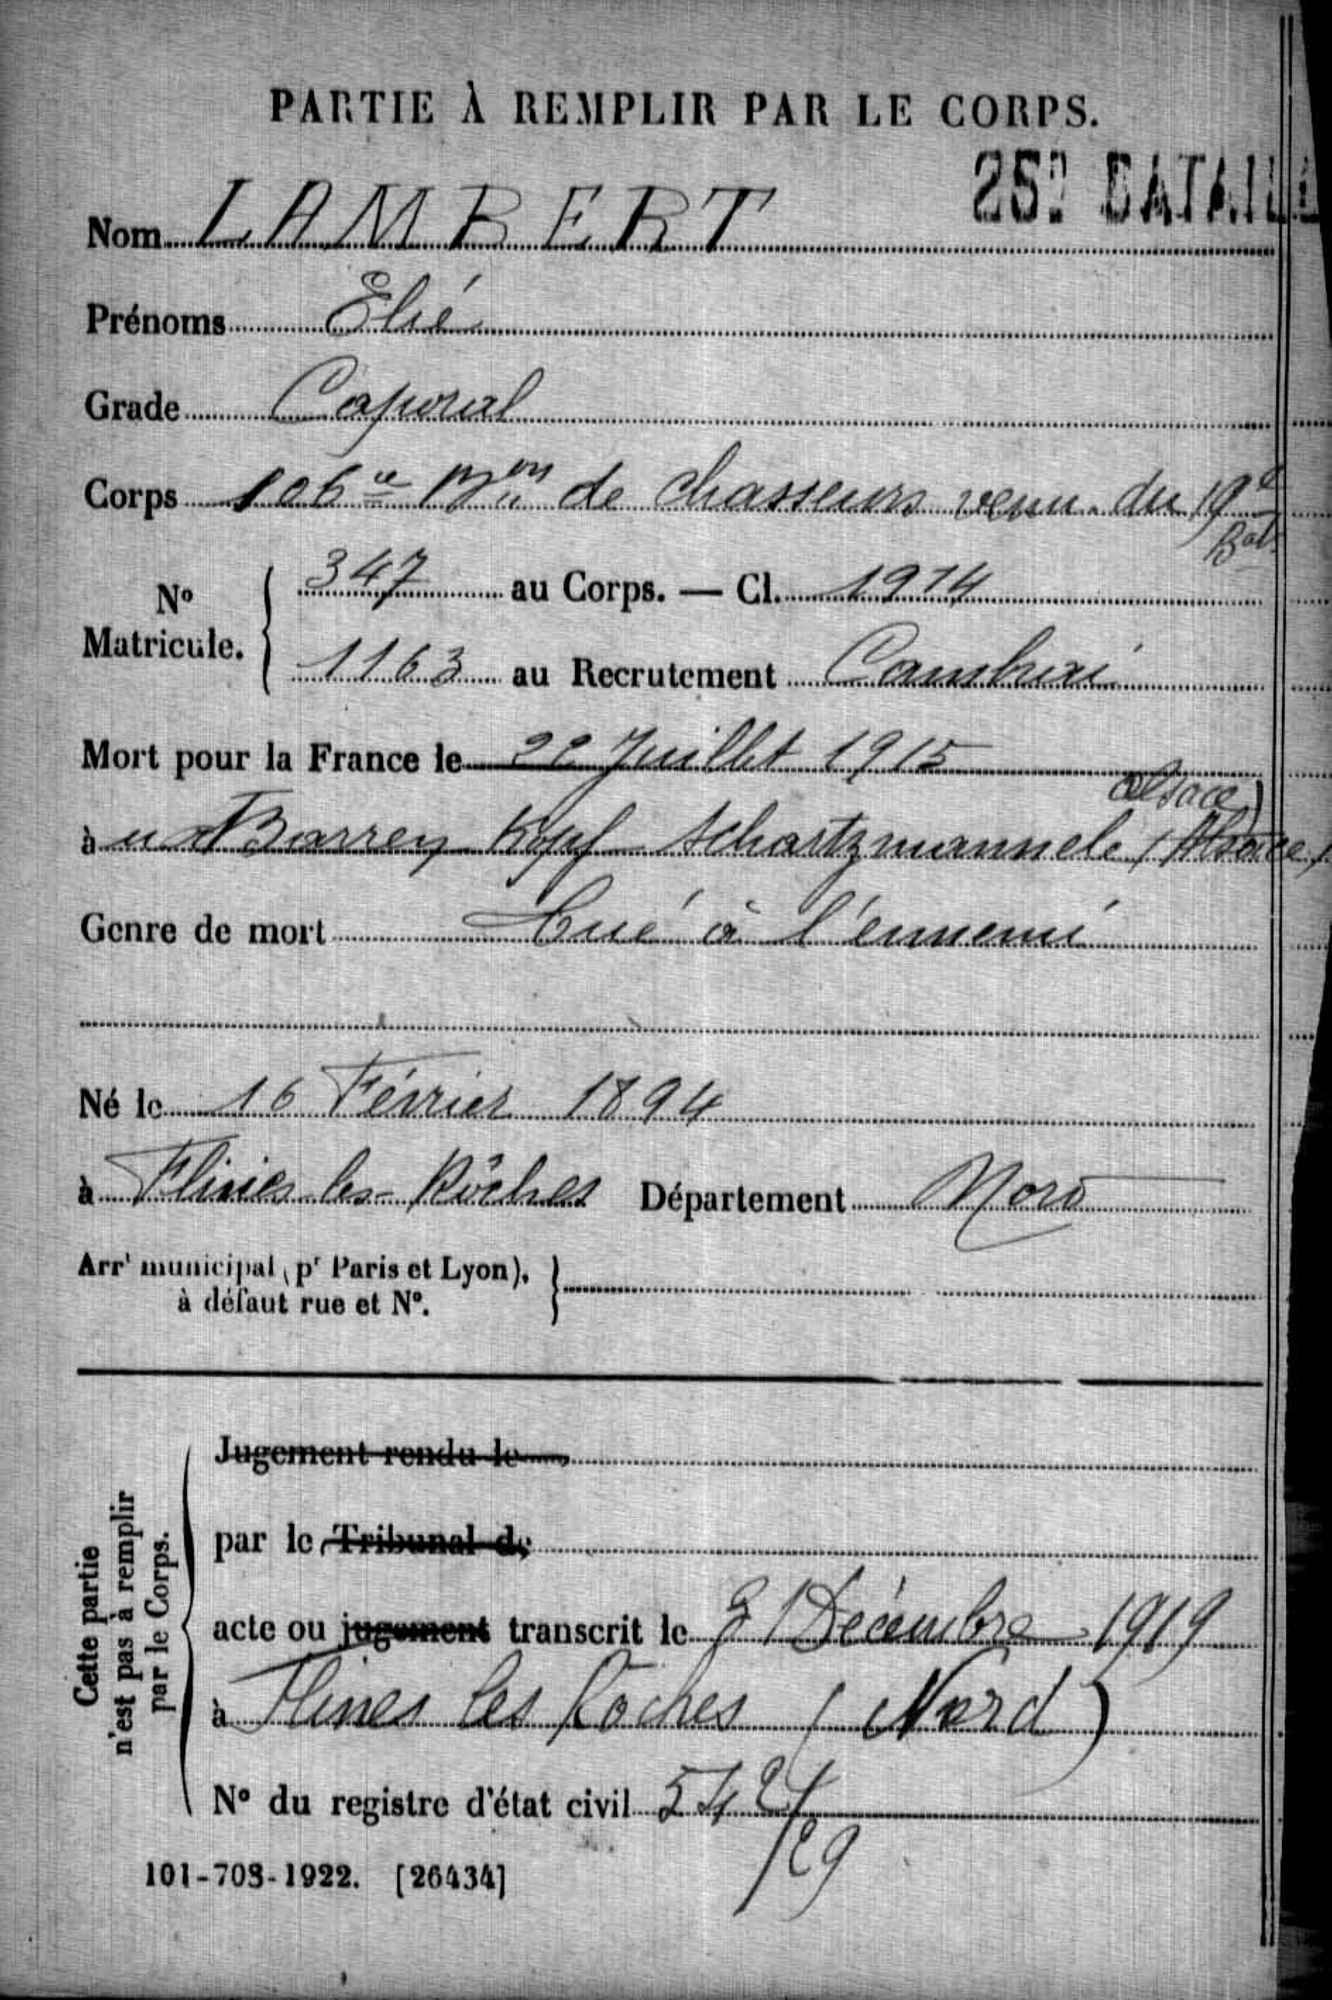 PARTIE À REMPLIR PAR LE CORPS.
25e BATAILL
Nom LAMBERT
Prénoms Elié
Grade Caporal
Corps 106e Bon de chasseurs venu du 19e Bat
No Matricule. 347 au Corps. — Cl. 1914
1163 au Recrutement Cambrai
Mort pour la France le 22 Juillet 1915
alsace)
à Barren Kopf Schartzmannele (Alsace)
Genre de mort tué à l'ennemi
Né le 16 Février 1894
à Flines les Rôches Département Nord
Arrt municipal (pr Paris et Lyon),
à défaut rue et No.
Cette partie
n'est pas à remplir
par le Corps.
Jugement rendu le
par le Tribunal de
acte ou jugement transcrit le Décembre 1919
à Flines les Roches (Nord)
No du registre d'état civil
101-708-1922. [26434]